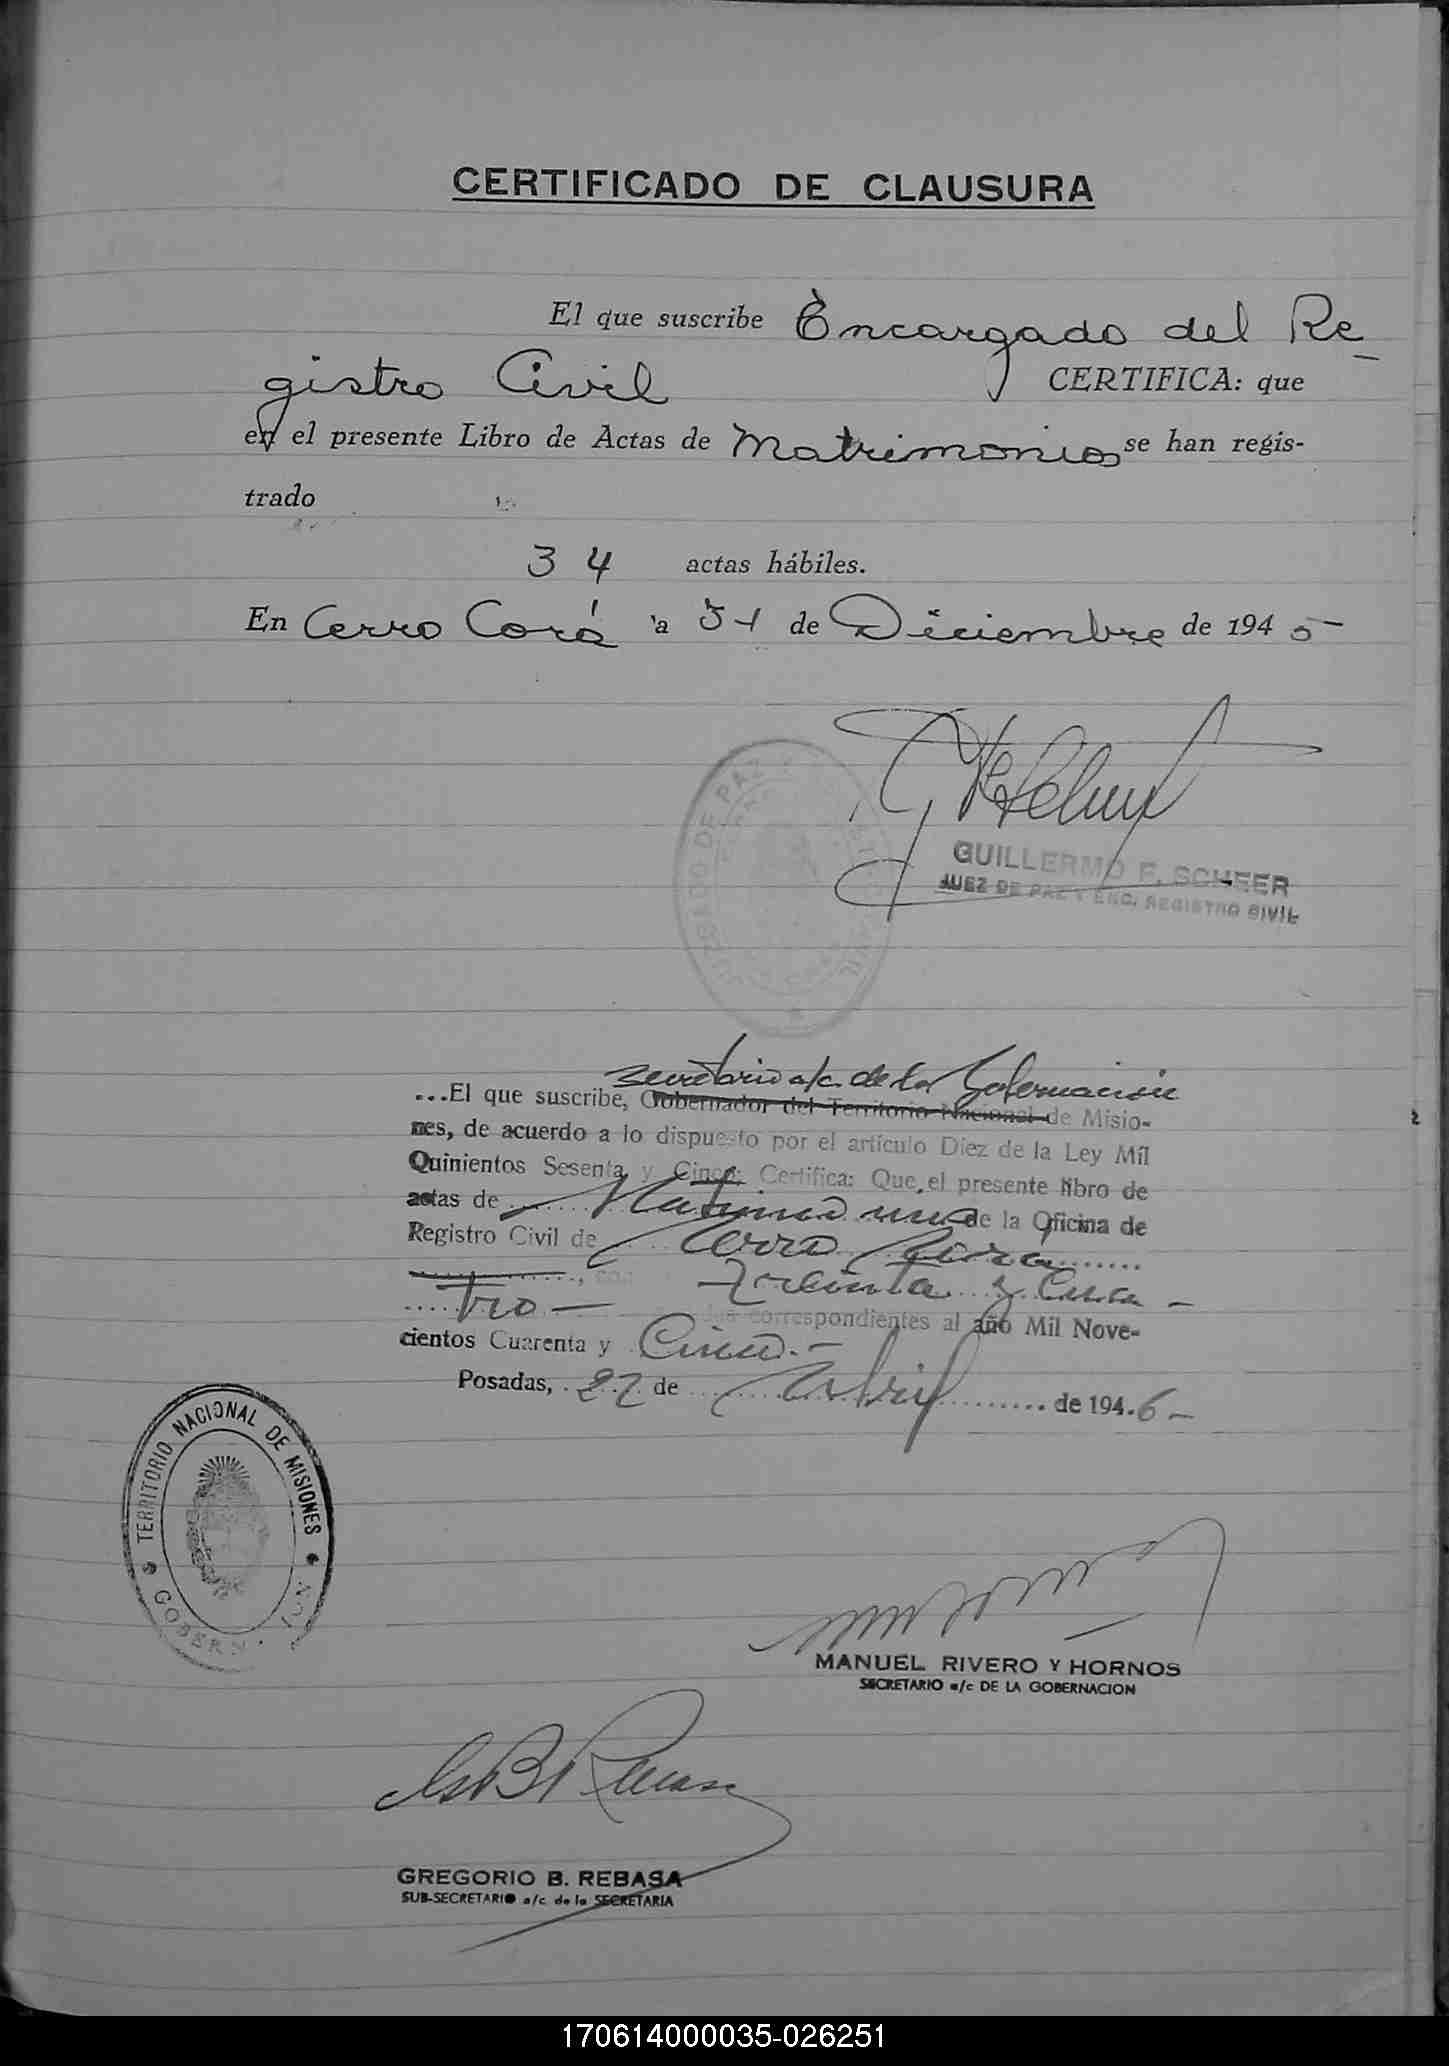 CERTIFICADO DE CLAUSURA
El que suscribe Encargado del Re-
gistro Civil CERTIFICA: que
en el presente Libro de Actas de Matrimonios se han regis-
trado
34 actas hábiles.
En Cerro Corá a 31 de Diciembre de 1945-
JUZGADO DE PAZ Y
GUILLERMO F. SCHEER
JUEZ DE PAZ Y ENC. REGISTRO CIVIL
Secretario a/c. de la Gobernación
...El que suscribe, Gobernador del Territorio Nacional de Misio-
nes, de acuerdo a lo dispuesto por el artículo Diez de la Ley Mil
Quinientos Sesenta y Cinco; Certifica: Que, el presente libro de
actas de Matrimonios de la Oficina de
Registro Civil de Cerro Corá
, con Treinta y Cua-
tro- correspondientes al año Mil Nove-
cientos Cuarenta y Cinco.-
Posadas, 27 de Abril de 1946-
TERRITORIO NACIONAL DE MISIONES
MANUEL RIVERO Y HORNOS
SECRETARIO a/c DE LA GOBERNACION
GREGORIO B. REBASA
SUB-SECRETARIO a/c de la SECRETARIA
170614000035-026251